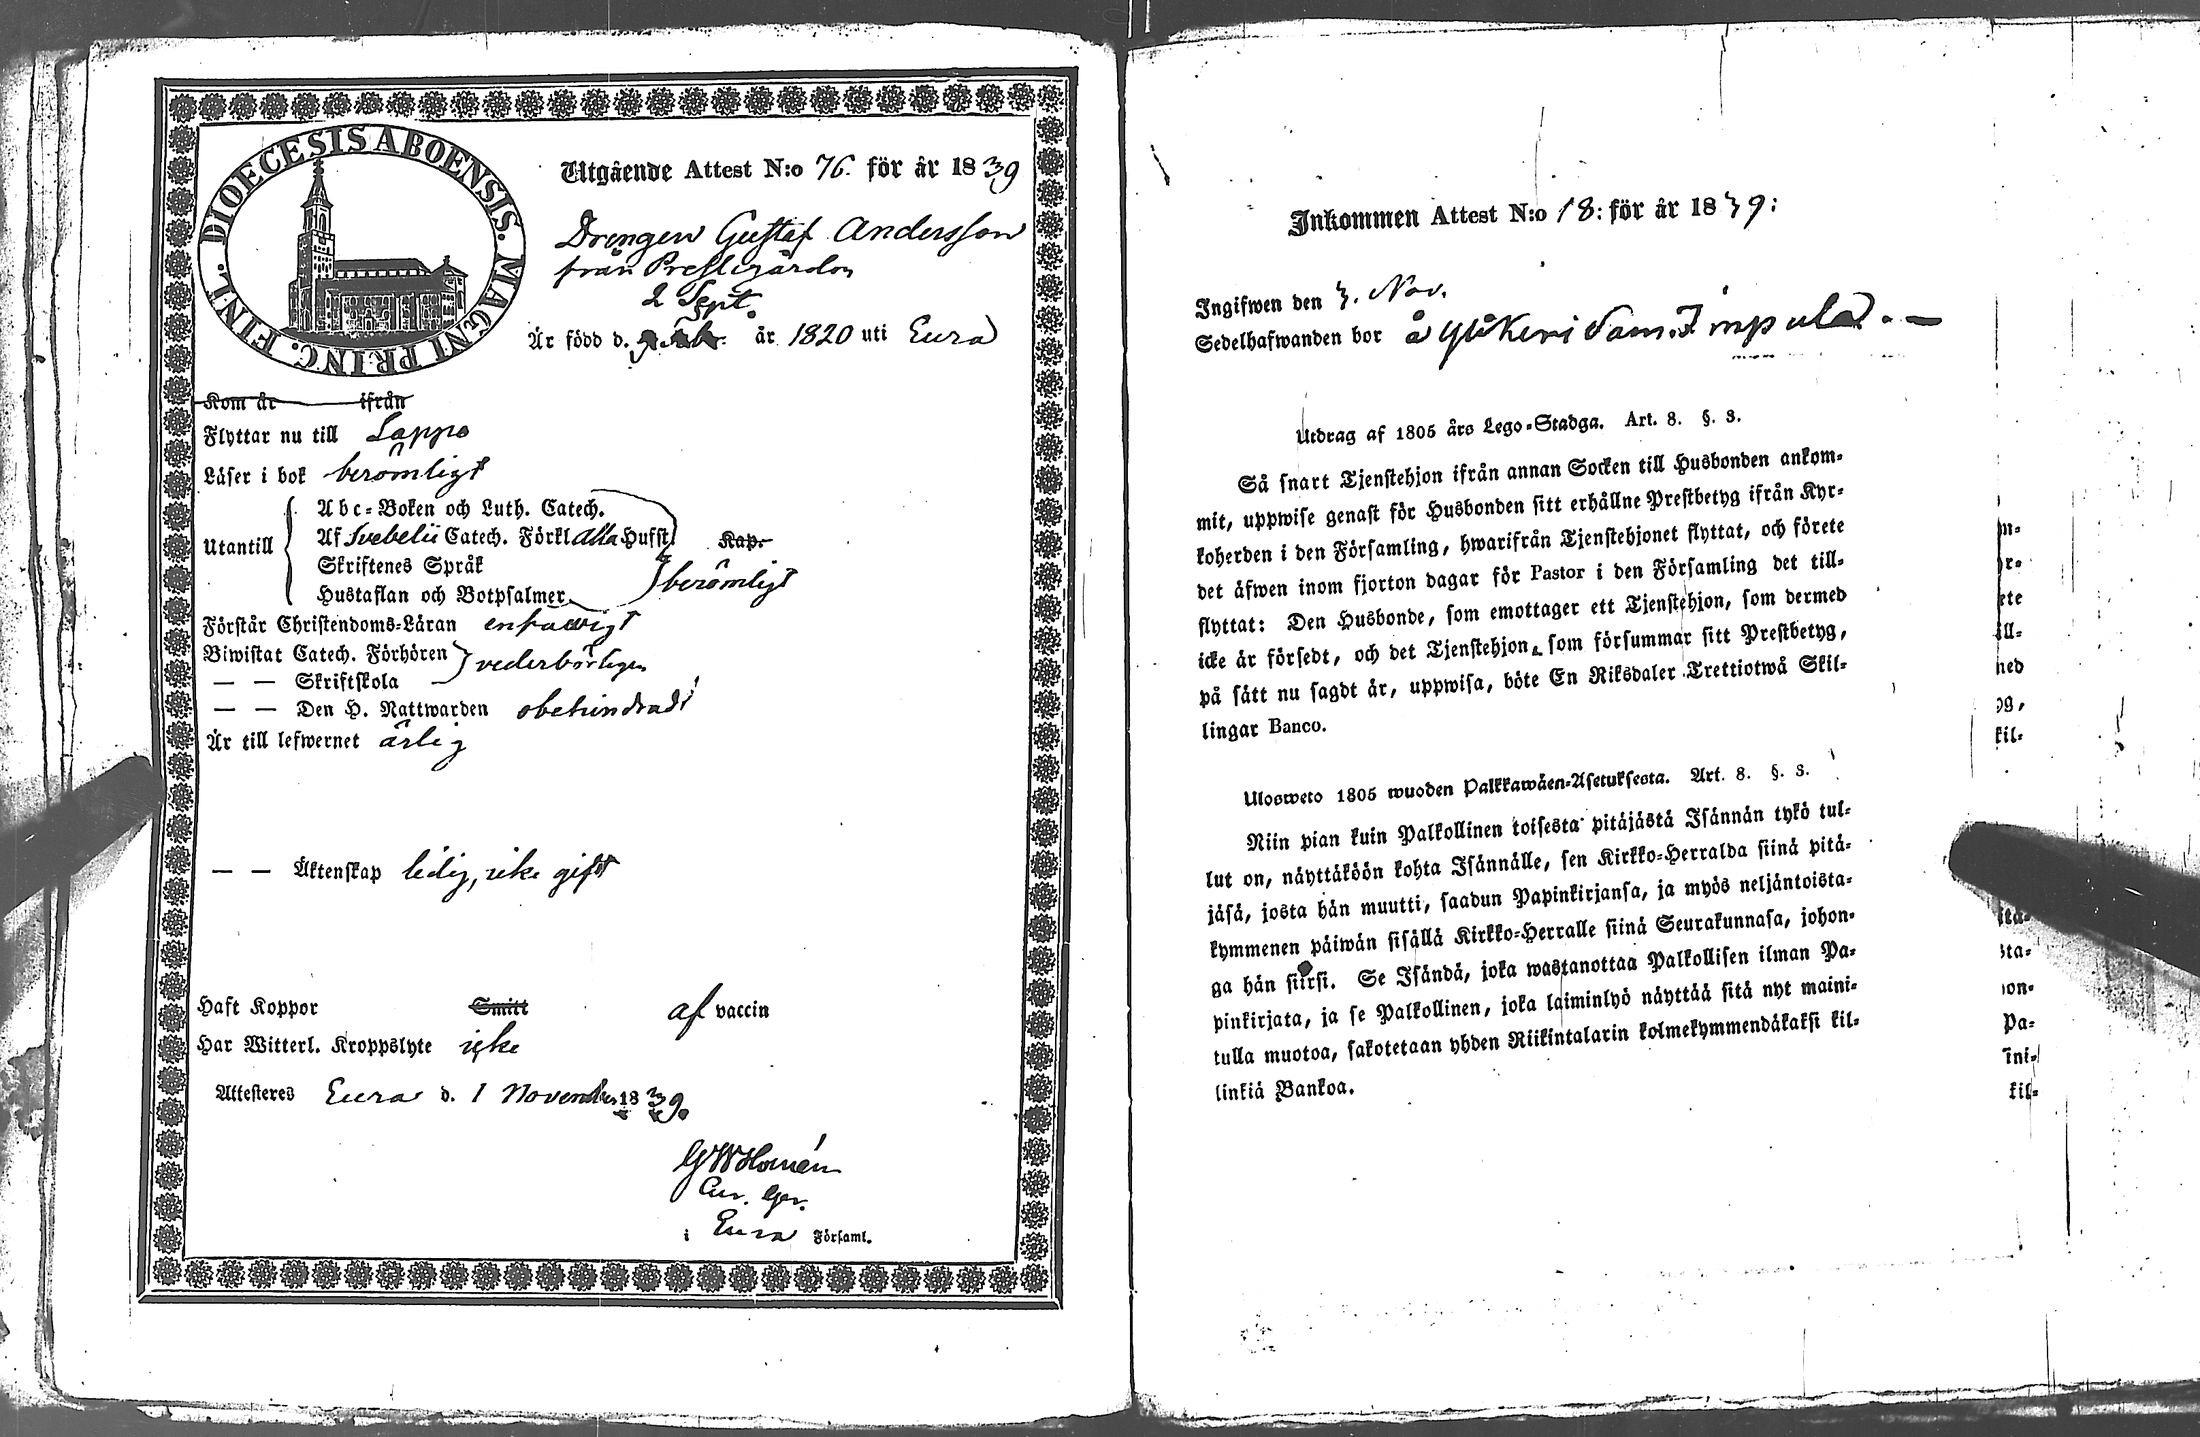 DIOECESIS ABOENSIS. MAGNI PRINC. FINL.
Utgående Attest N:o 76. för år 1839
Drengen Gustaf Andersson
från Prestgården
2 Sept.
Är född d. år 1820 uti Eura
Kom år ifrån
Flyttar nu till Lappo
Läser i bok berömligt
Utantill
Abc-Boken och Luth. Catech.
Af Svebelii Catech. Förkl alla Hufst. Kap.
Skriftenes Språk
Hustaflan och Botpsalmer
berömligt
Förstår Christendoms-Läran enfaldigt
Biwistat Catech. Förhören
— — Skriftskola
vederbörligen
— — Den H. Nattwarden obehindradt
Är till lefwernet ärlig
— — Äktenskap ledig, icke gift
Haft Koppor Smitt af vaccin
Har Witterl. Kroppslyte icke
Attesteres Eura d. 1 November 1839.
GW Homén
i Eura Församl.
Inkommen Attest N:o 18: för år 1839:
Ingifwen den 3. Nov.
Sedelhafwanden bor å
Utdrag af 1805 års Lego-Stadga. Art. 8. §. 3.
Så snart Tjenstehjon ifrån annan Socken till Husbonden ankom-
mit, uppwise genast för Husbonden sitt erhållne Prestbetyg ifrån Kyr-
koherden i den Församling, hwarifrån Tjenstehjonet flyttat, och förete
det äfwen inom fjorton dagar för Pastor i den Församling det till-
flyttat: Den Husbonde, som emottager ett Tjenstehjon, som dermed
icke är försedt, och det Tjenstehjon, som försummar sitt Prestbetyg,
på sätt nu sagdt är, uppwisa, böte En Riksdaler Trettiotwå Skil-
lingar Banco.
Ulosweto 1805 wuoden Palkkawäen-Asetuksesta. Art. 8. §. 3.
Niin pian kuin Palkollinen toisesta pitäjästä Isännän tykö tul-
lut on, näyttäköön kohta Isännälle, sen Kirkko-Herralda siinä pitä-
jäsä, josta hän muutti, saadun Papinkirjansa, ja myös neljäntoista-
kymmenen päiwän sisällä Kirkko-Herralle siinä Seurakunnasa, johon-
ga hän siirsi. Se Isändä, joka wastanottaa Palkollisen ilman Pa-
pinkirjata, ja se Palkollinen, joka laiminlyö näyttää sitä nyt maini-
tulla muotoa, sakotetaan yhden Riikintalarin kolmekymmendäkaksi kil-
linkiä Bankoa.